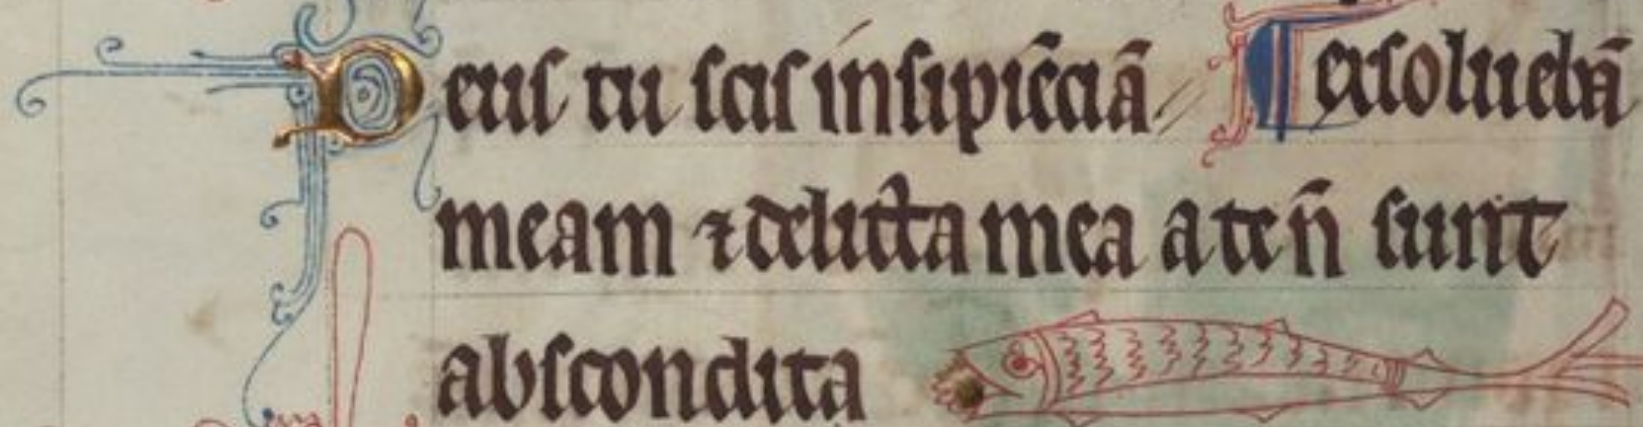 Deus tu scis insipiẽciã // exsoluebã
meam ⁊ delicta mea a te ñ sunt
abscondita